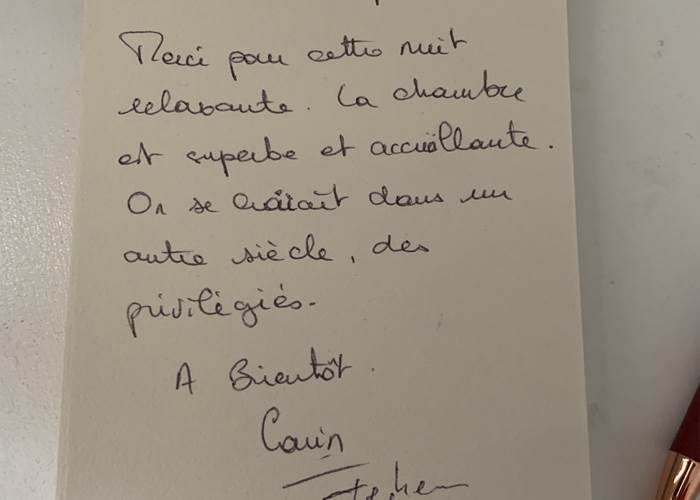 Merci pour cette nuit
relaxante. La chambre
est superbe et accueillante.
On se croirait dans un
autre siècle, des
privilégiés.
A Bientôt.